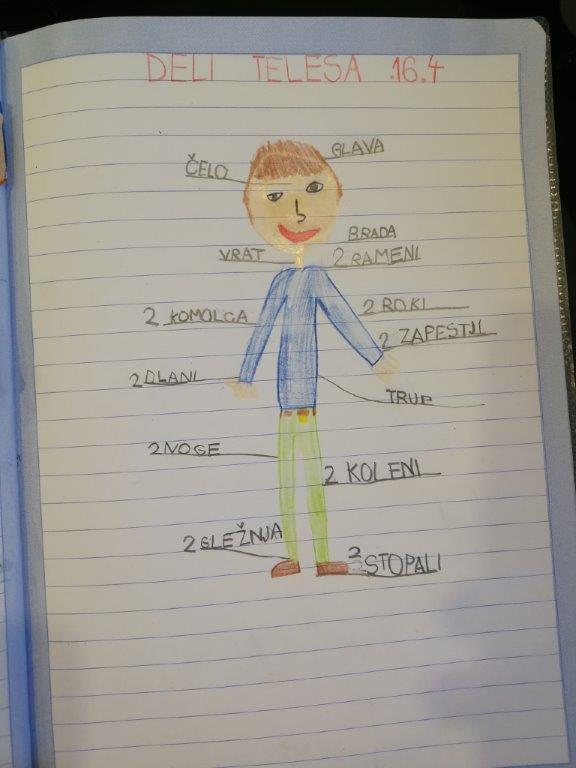 DELI TELESA .16.4
GLAVA
ČELO
BRADA
VRAT
2 RAMENI
2 ROKI
2 KOMOLCA
2 ZAPESTJI
2 DLANI
TRUP
2 NOGE
2 KOLENI
2 GLEŽNJA
2 STOPALI